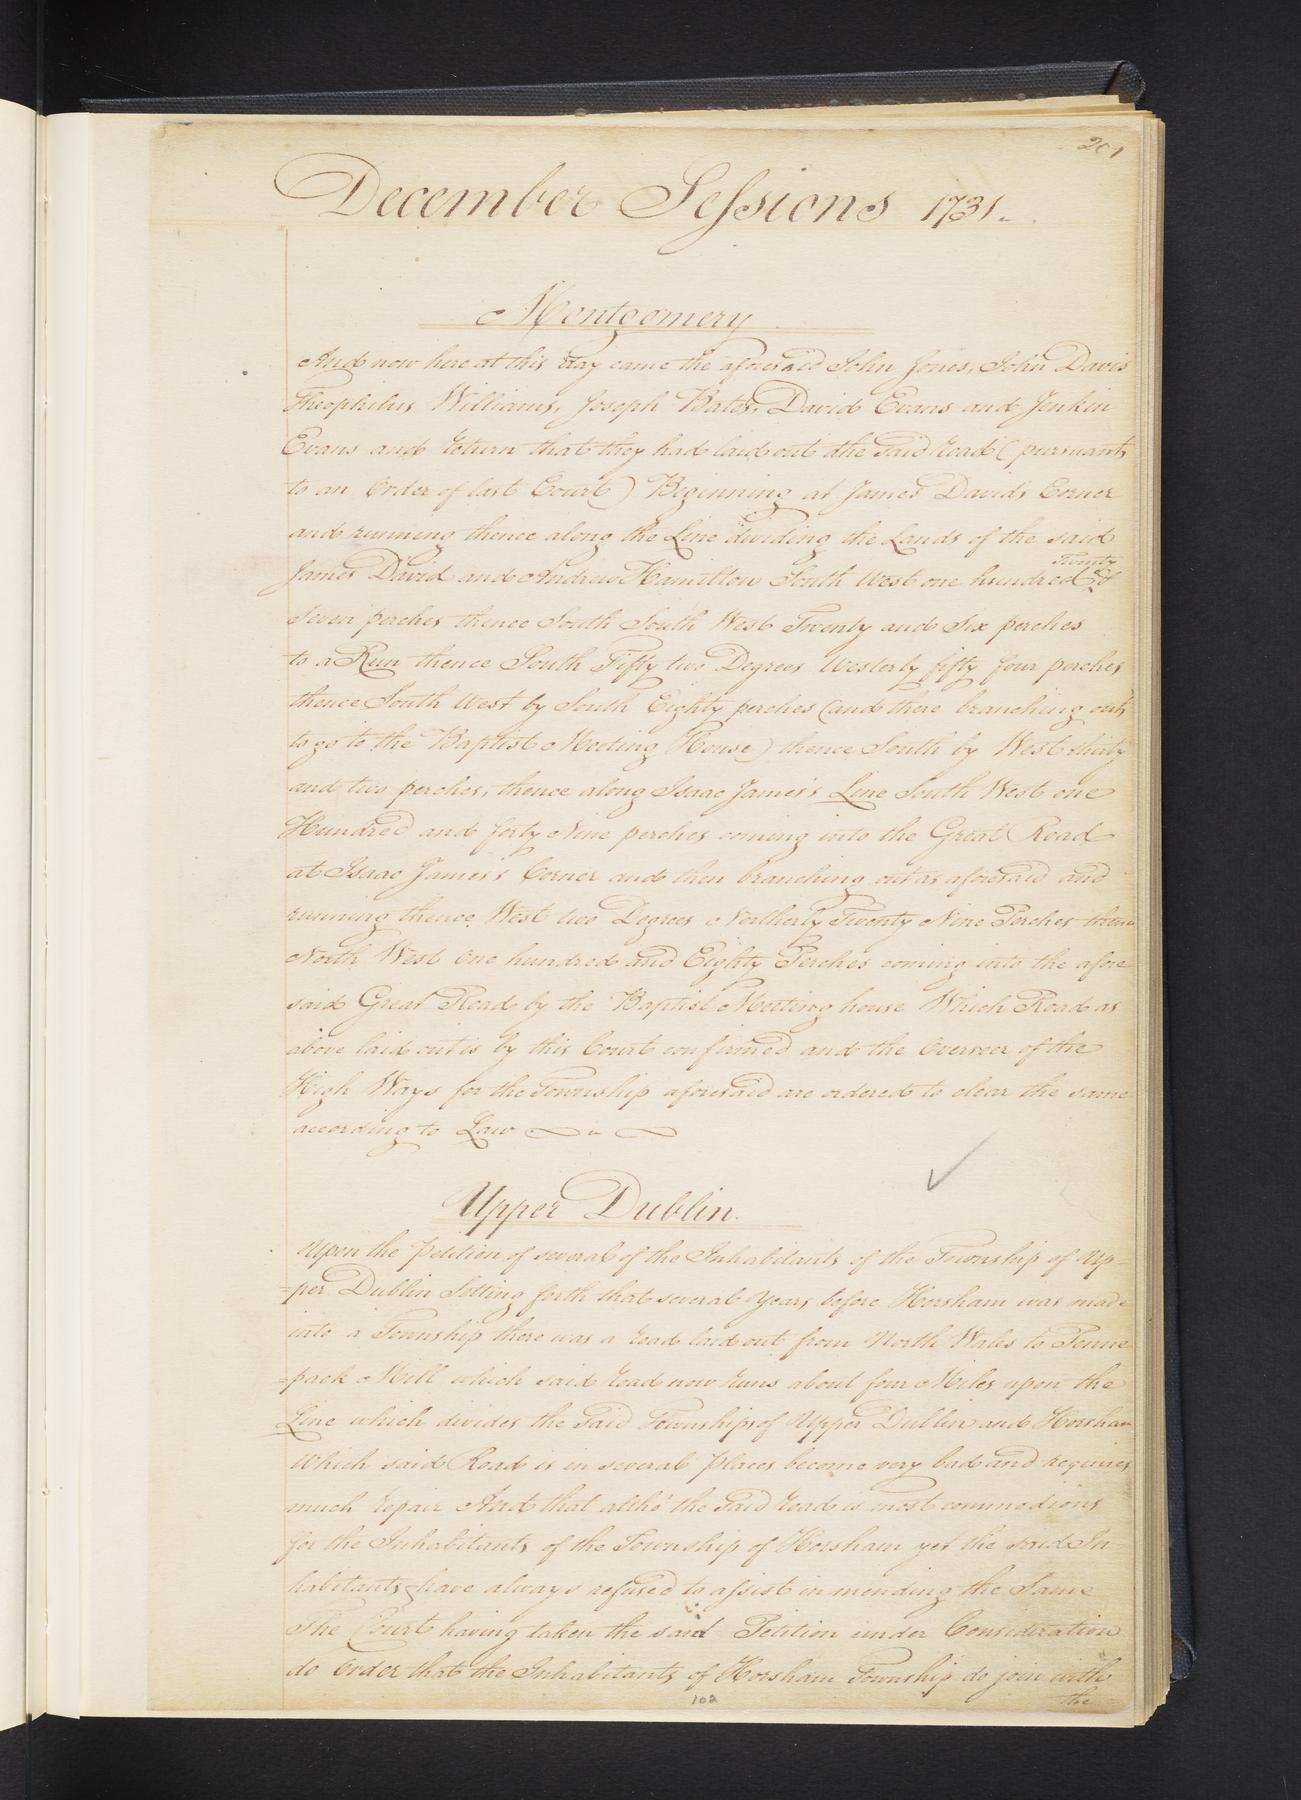 201
December Sessions 1731.
Montgomery
And now here at this day came the aforesaid John Jones, John Davis
Theophilus Williams, Joseph Bates, David Evans and Jenkin
Evans and return that they had laid out the said road (pursuant
to an Order of last Court) Beginning at James David's Corner
and running thence along the Line dividing the Lands of the said
Twenty
James David and Andrew Hamilton South West one hundred &
seven perches thence South South West Twenty and Six perches
to a Run thence South Fifty two Degrees Westerly fifty four perches
thence South West by South Eighty perches (and there branching out
to go to the Baptist Meeting House) thence South by West thirty
and two perches, thence along Isaac James's Line South West one
Hundred and forty Nine perches coming into the Great Road
at Isaac James's Corner and then branching out as aforesaid and
running thence West two Degrees Northerly Twenty Nine Perches thence
North West One hundred and Eighty Perches coming into the afore
said Great Road by the Baptist Meeting house Which Road as
above laid out is by this Court confirmed and the Overseer of the
High Ways for the Township aforesaid are ordered to clear the same
according to Law
Upper Dublin.
Upon the Petition of several of the Inhabitants of the Township of Up-
=per Dublin Setting forth that several Years before Horsham was made
into a Township there was a road laid out from North Wales to Penne
=pack Mill which said road now runs about four Miles upon the
Line which divides the said Townships of Upper Dublin and Horsham
which said Road is in several places become very bad and requires
much repair And that altho' the said road is most commodious
for the Inhabitants of the Township of Horsham yet the said In-
habitants have always refused to assist in mending the Same
The Court having taken the said Petition under Consideration
do Order that the Inhabitants of Horsham Township do join with
the
102